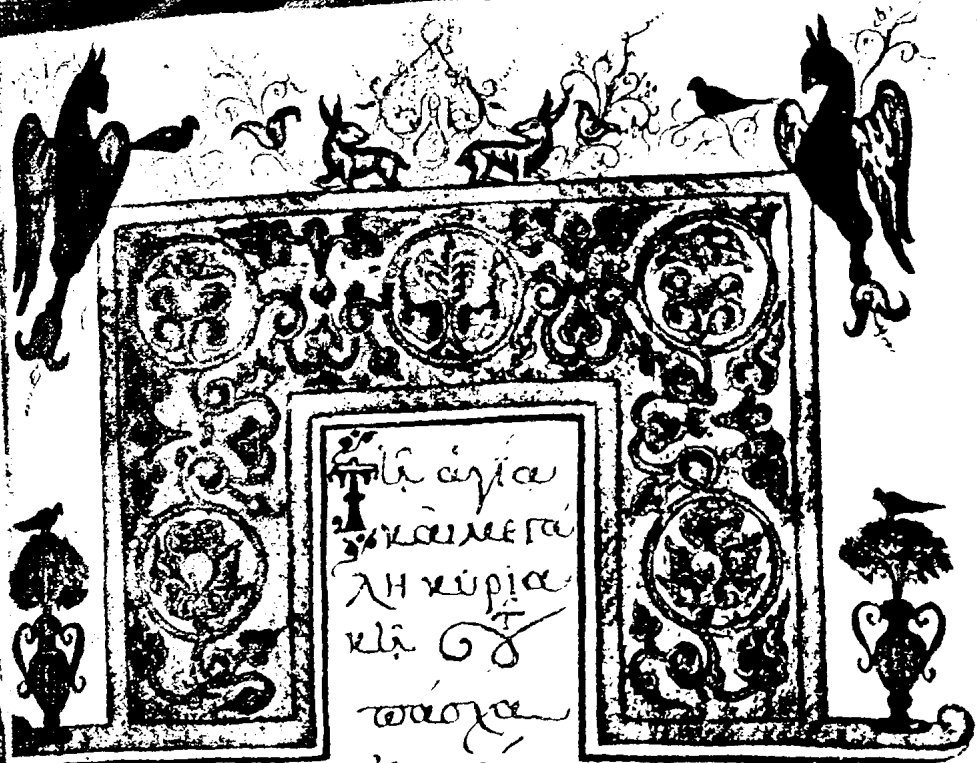 Τῆι ἁγίαι
καὶ μεγά
λη κυρια
κῆι τ
πάσχα